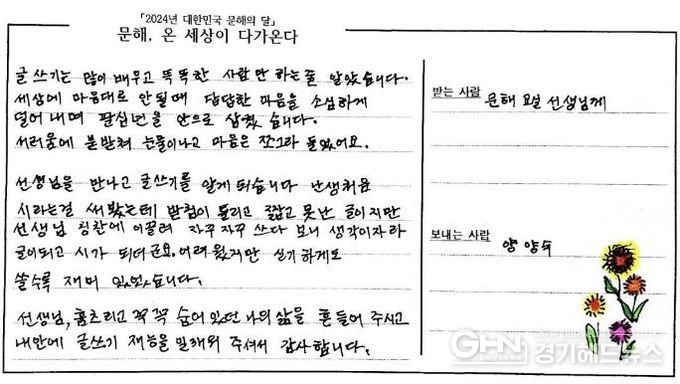 「2024년 대한민국 문해의 달」
문해, 온 세상이 다가온다
글쓰기는 많이 배우고 똑똑한 사람만 하는줄 알았습니다.
세상에 마음대로 안될때 답답한 마음을 소심하게
덜어내며 팔십년을 안으로 삼켰습니다.
서러움에 북받쳐 눈물이나고 마음은 쪼그라 들었어요.
선생님을 만나고 글쓰기를 알게 되습니다 난생처음
시라는걸 써봤는데 받침이 틀리고 굵잡고 못난 글이지만
선생님 칭찬에 이끌려 자꾸자꾸 쓰다 보니 생각이자라
글이되고 시가 되더군요. 어려웠지만 신기하게도
쓸수록 재미 있었습니다.
선생님, 움츠리고 꼭꼭 숨어있던 나의 삶을 흔들어 주시고
내안에 글쓰기 재능을 일깨워 주셔서 감사합니다.
받는 사람
문해 교실 선생님께
보내는 사람
양양숙
GHN
경기헤드뉴스